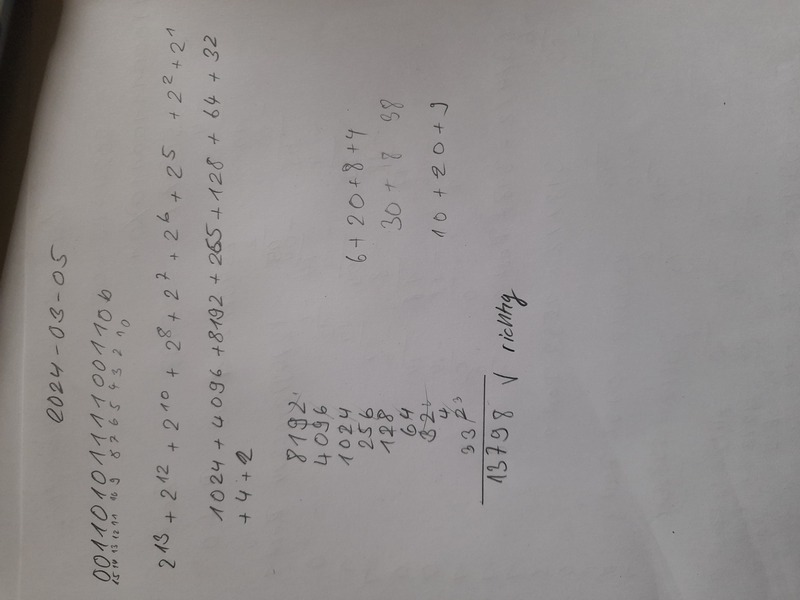 2024-03-05
0011010111100110 b
15 14 13 12 11 10 9 8 7 6 5 4 3 2 1 0
2^13 + 2^12 + 2^10 + 2^8 + 2^7 + 2^6 + 2^5 + 2^2 + 2^1
1024 + 4096 + 8192 + 265 + 128 + 64 + 32
+ 4 + 2
8192
4096
1024
256
128
64
32
4
2
33 3
13798 √ richtig
6 + 20 + 8 + 4
30 + 8 38
10 + 20 + 9